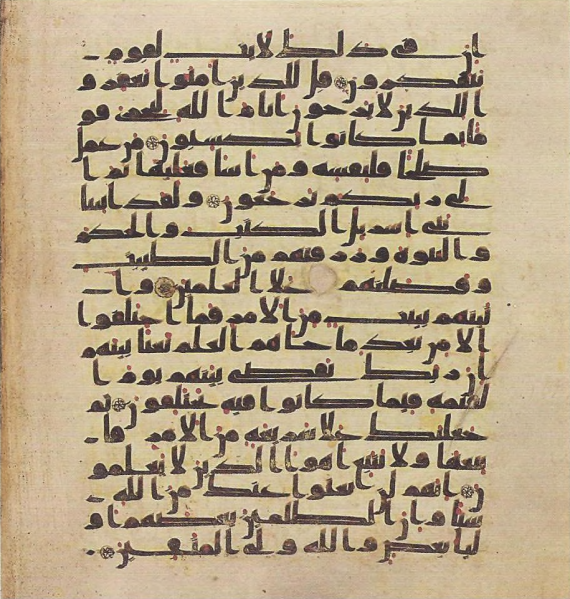 ان في ذلك لايت لقوم
يتفكرون قل للذين امنوا يغفرو
ا للذين لا يرجون ايام الله ليجزي قو
ما بما كانوا يكسبون من عمل
صلحا فلنفسه ومن اسا فعليها ثم ا
لى ربكم ترجعون ولقد اتينا
بني اسريل الكتب والحكم
والنبوة ورزقنهم من الطيبت
وفضلنهم على العلمين وا
تينهم بينت من الامر فما اختلفوا
الا من بعد ما جاهم العلم بغيا بينهم
ان ربك يقضي بينهم يوم ا
لقيمة فيما كانوا فيه يختلفون ثم
جعلنك على شريعة من الامر فا
تبعها ولا تتبع اهوا الذين لا يعلمو
ن انهم لن يغنوا عنك من الله
شيا وان الظلمين بعضهم ا و
ليا بعض والله ولي المتقين